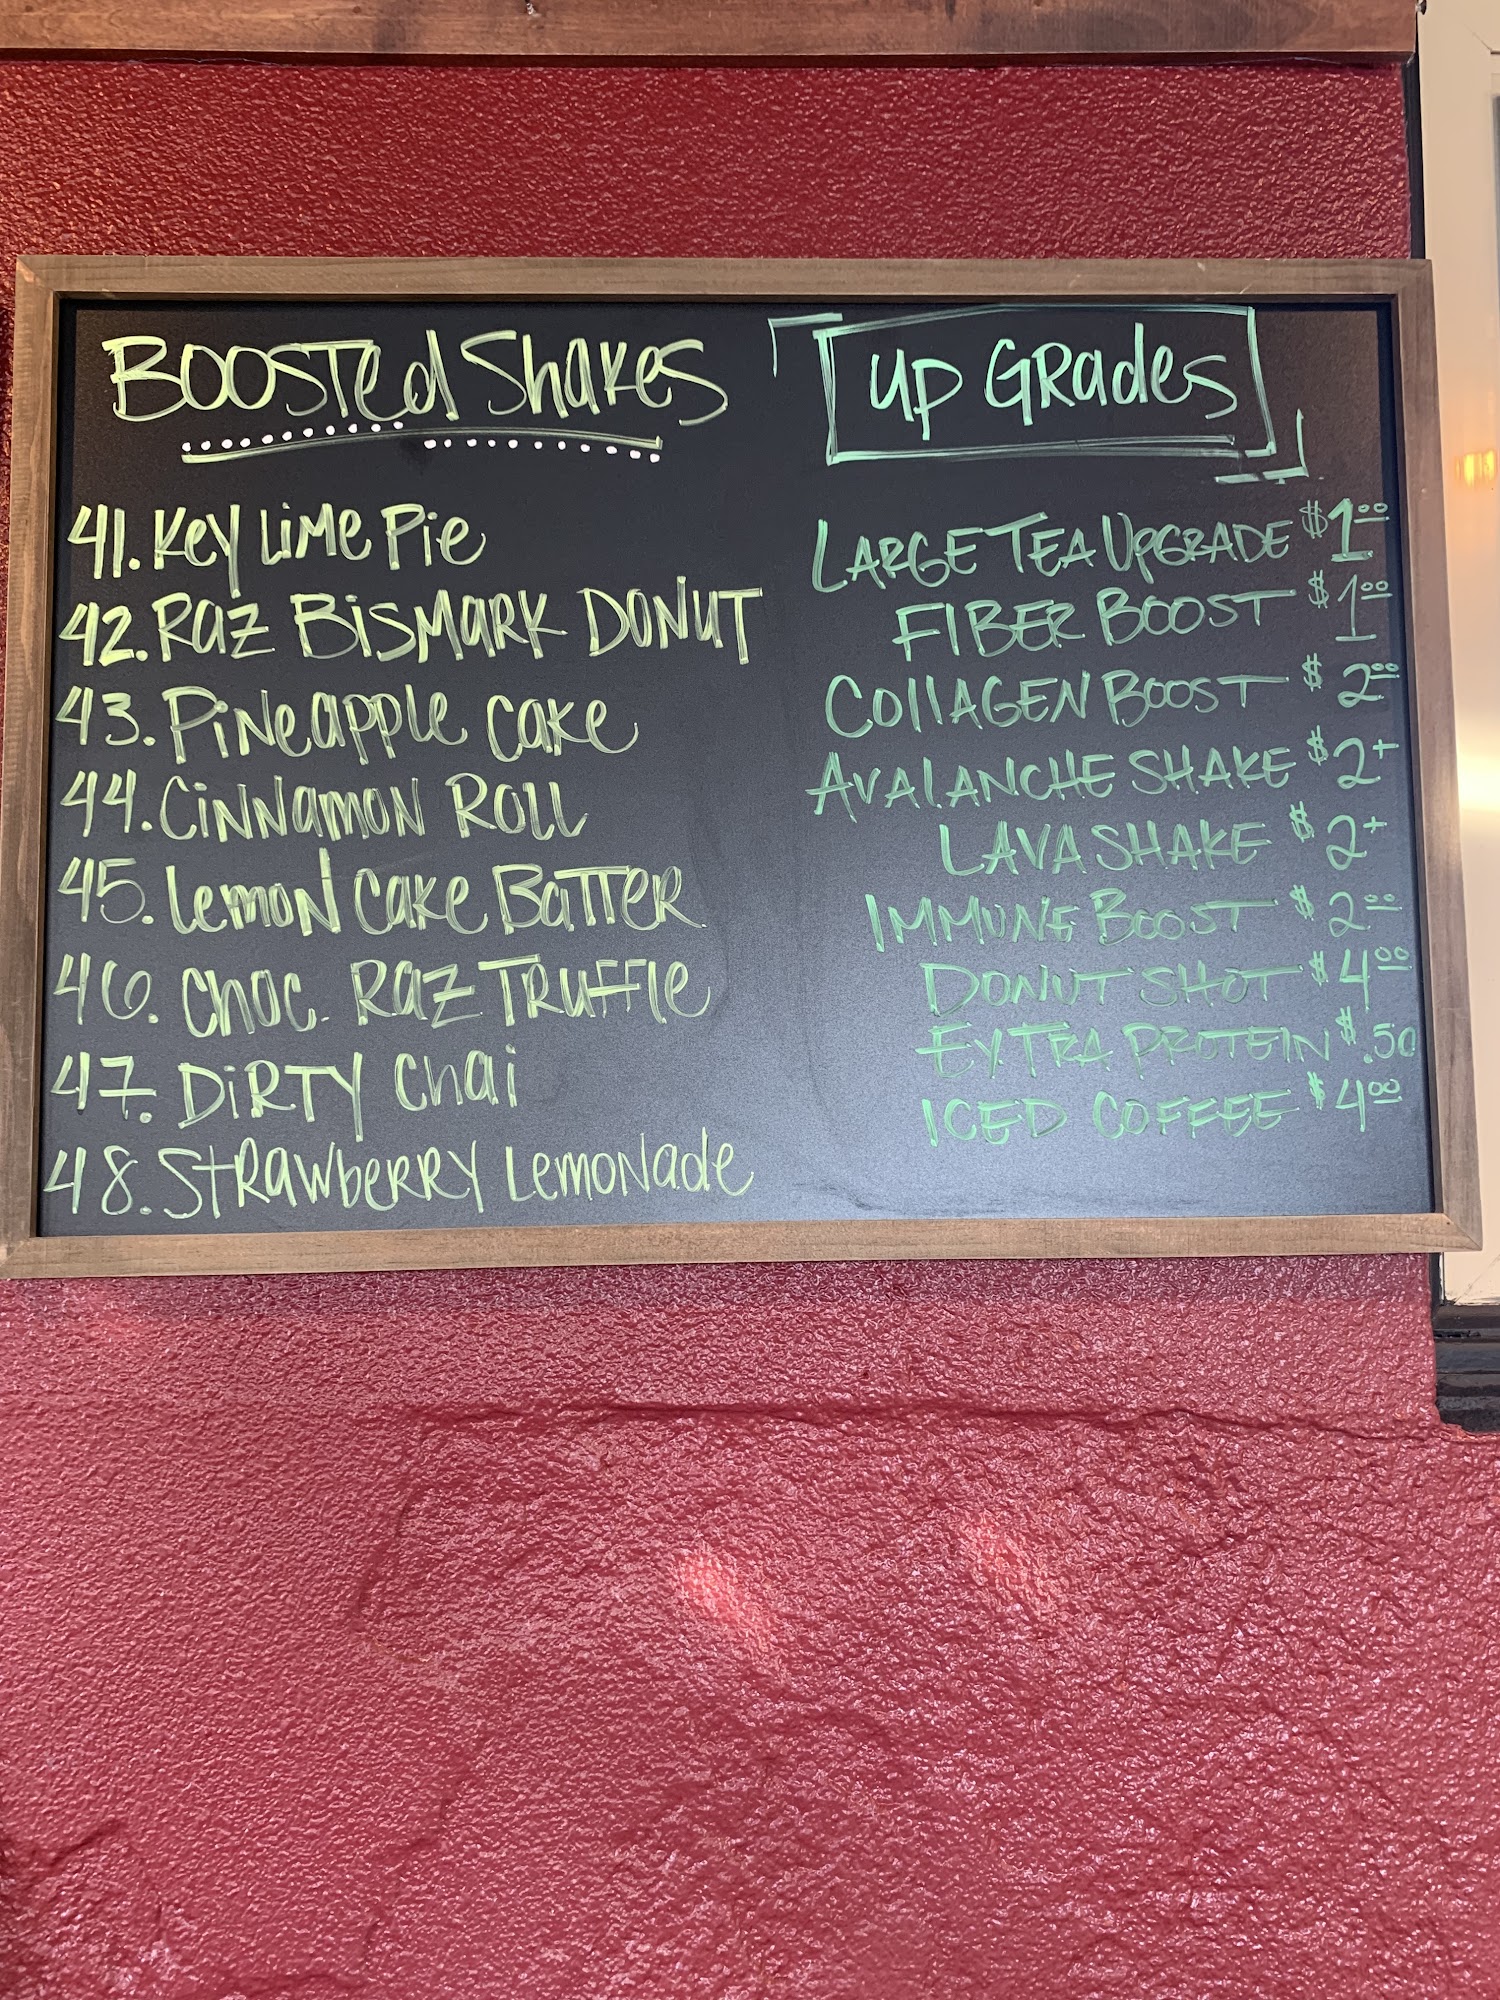 Boosted Shakes
41. Key Lime Pie
42. Raz Bismark Donut
43. Pineapple Cake
44. Cinnamon Roll
45. Lemon Cake Batter
46. Choc. Raz Truffle
47. Dirty Chai
48. Strawberry Lemonade
Up Grades
Large Tea Upgrade $1.00
Fiber Boost $1.00
Collagen Boost $2.00
Avalanche Shake $2+
Lava Shake $2+
Immune Boost $2.00
Donut Shot $4.00
Extra Protein $.50
Iced Coffee $4.00